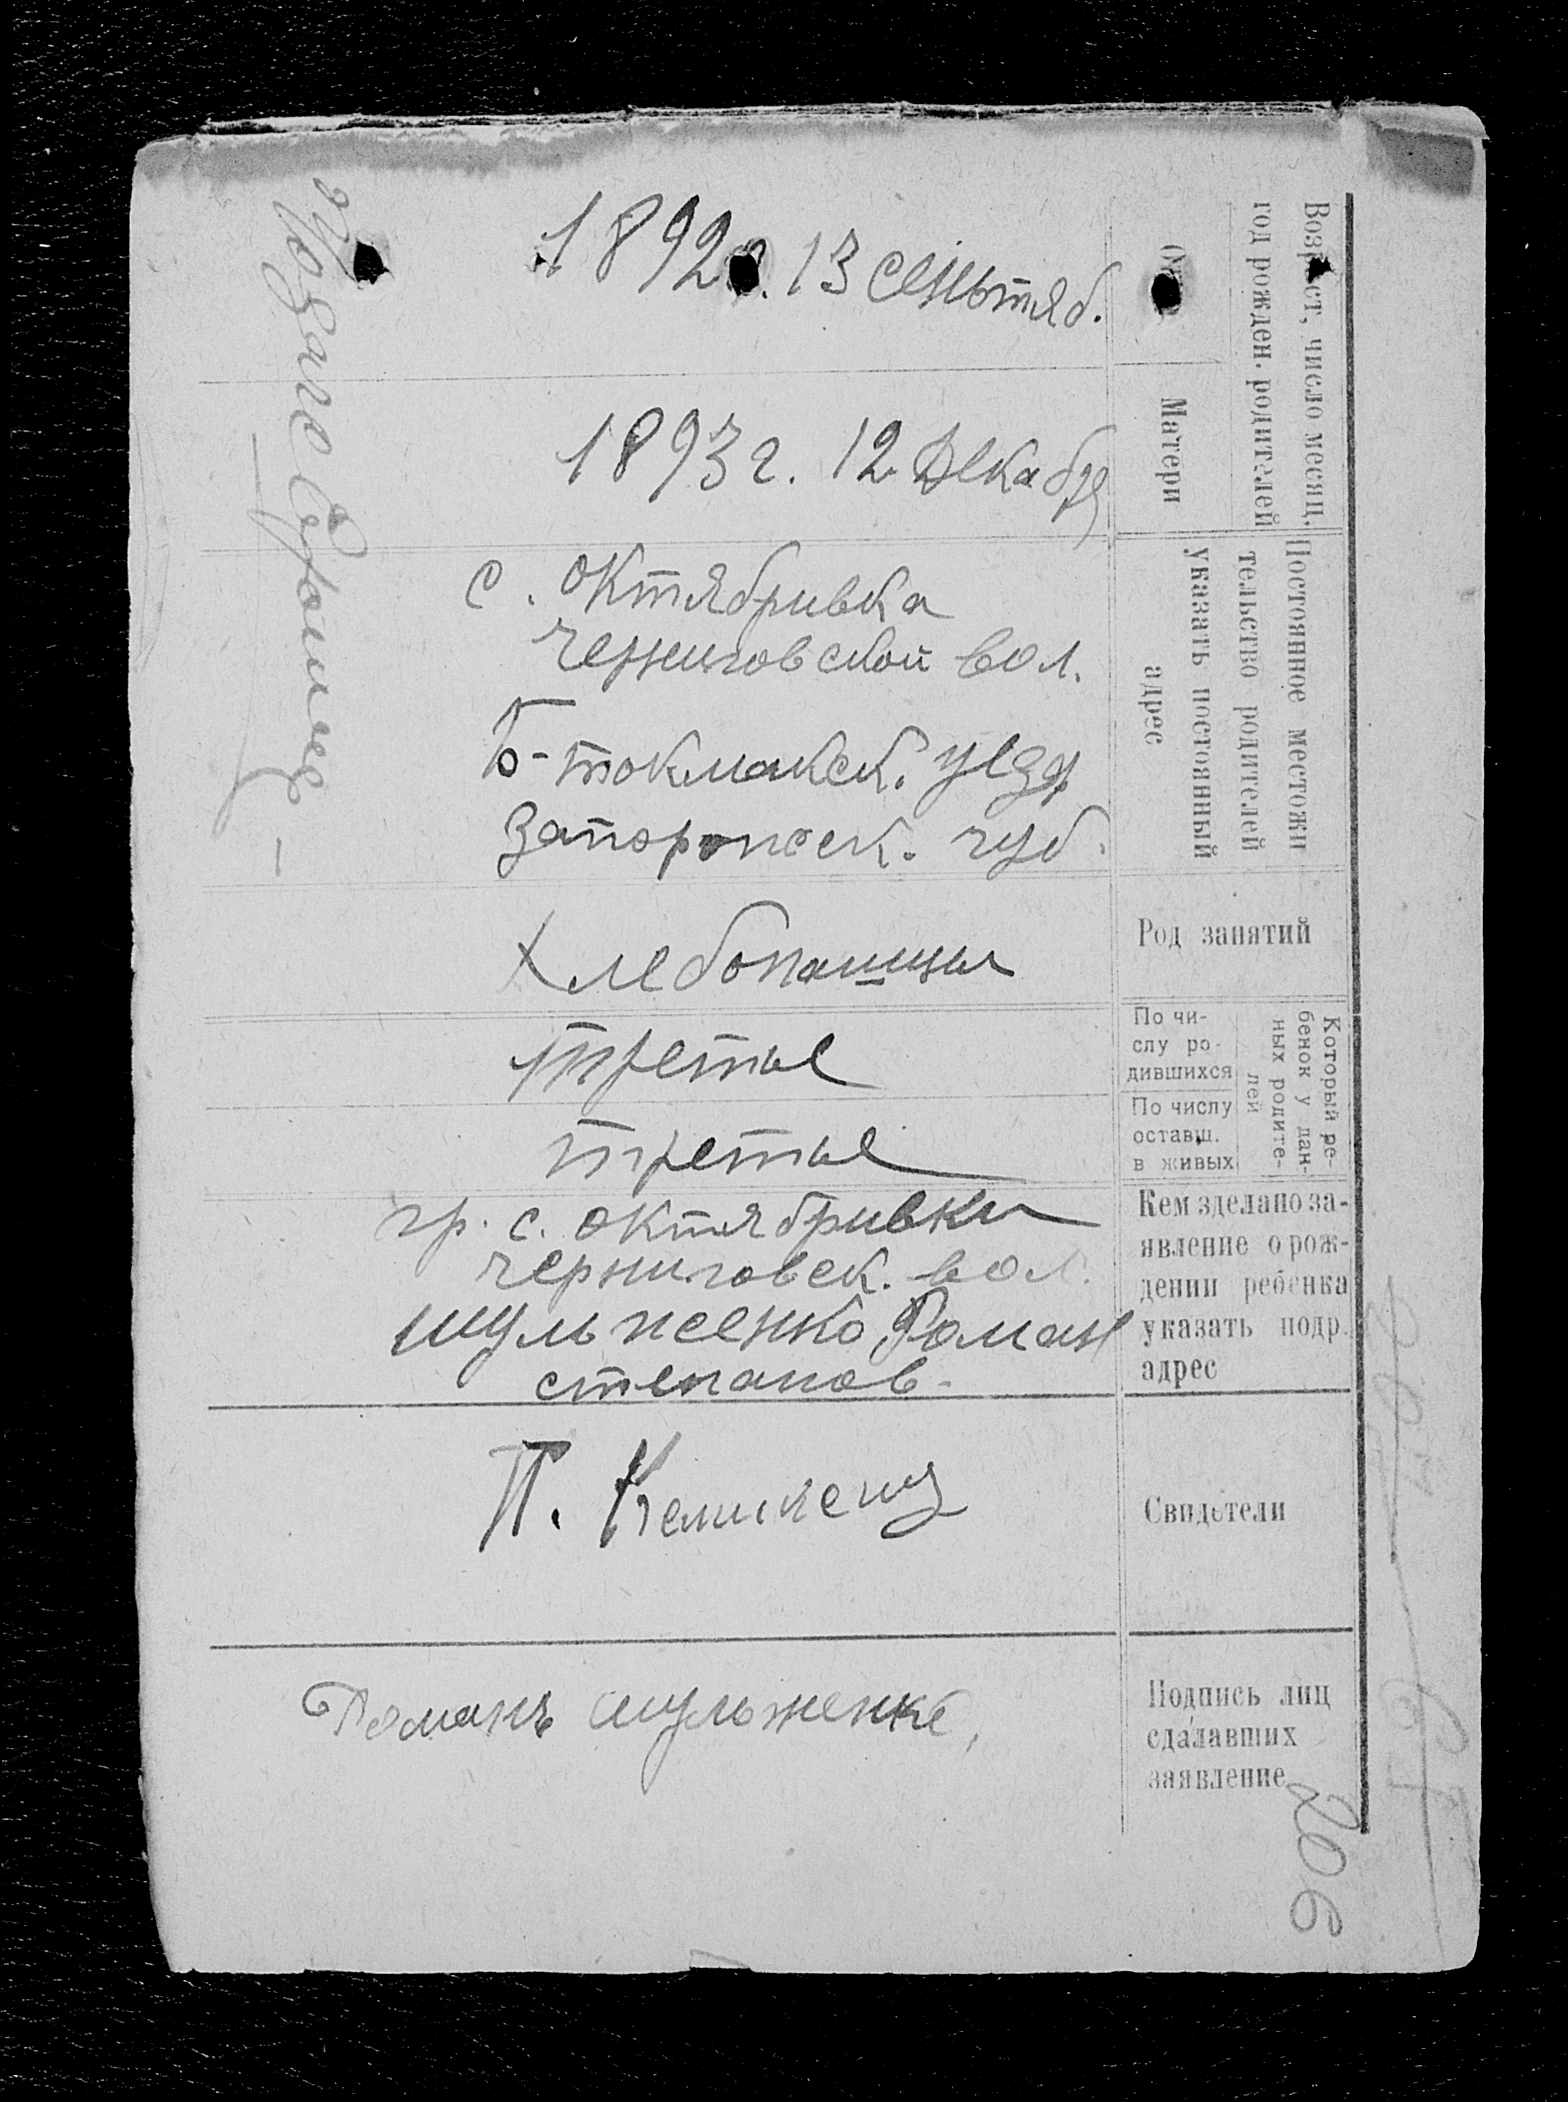 Возраст, число месяц.
год рожден. родителей
Отца
1892 г. 13 сеньтяб.
Матери
1893 г. 12 Декабря
Постоянное местожи
тельство родителей
указать постоянный
адрес
с. октябривка
черниговской вол.
Б-токмакск. уезд
запорожск. губ.
Род занятий
хлебопашцы
Который ре-
бенок у дан-
ных родите-
лей
По чи-
слу ро-
дившихся
третье
По числу
оставш.
в живых
третье
Кем зделано за-
явление о рож-
дении ребенка
указать подр.
адрес
гр. с. октябривки
черниговск. вол.
шульженко Роман
степанов.
Свидетели
П.
Подпись лиц
сдалавших
заявление
Романъ шульженко
206